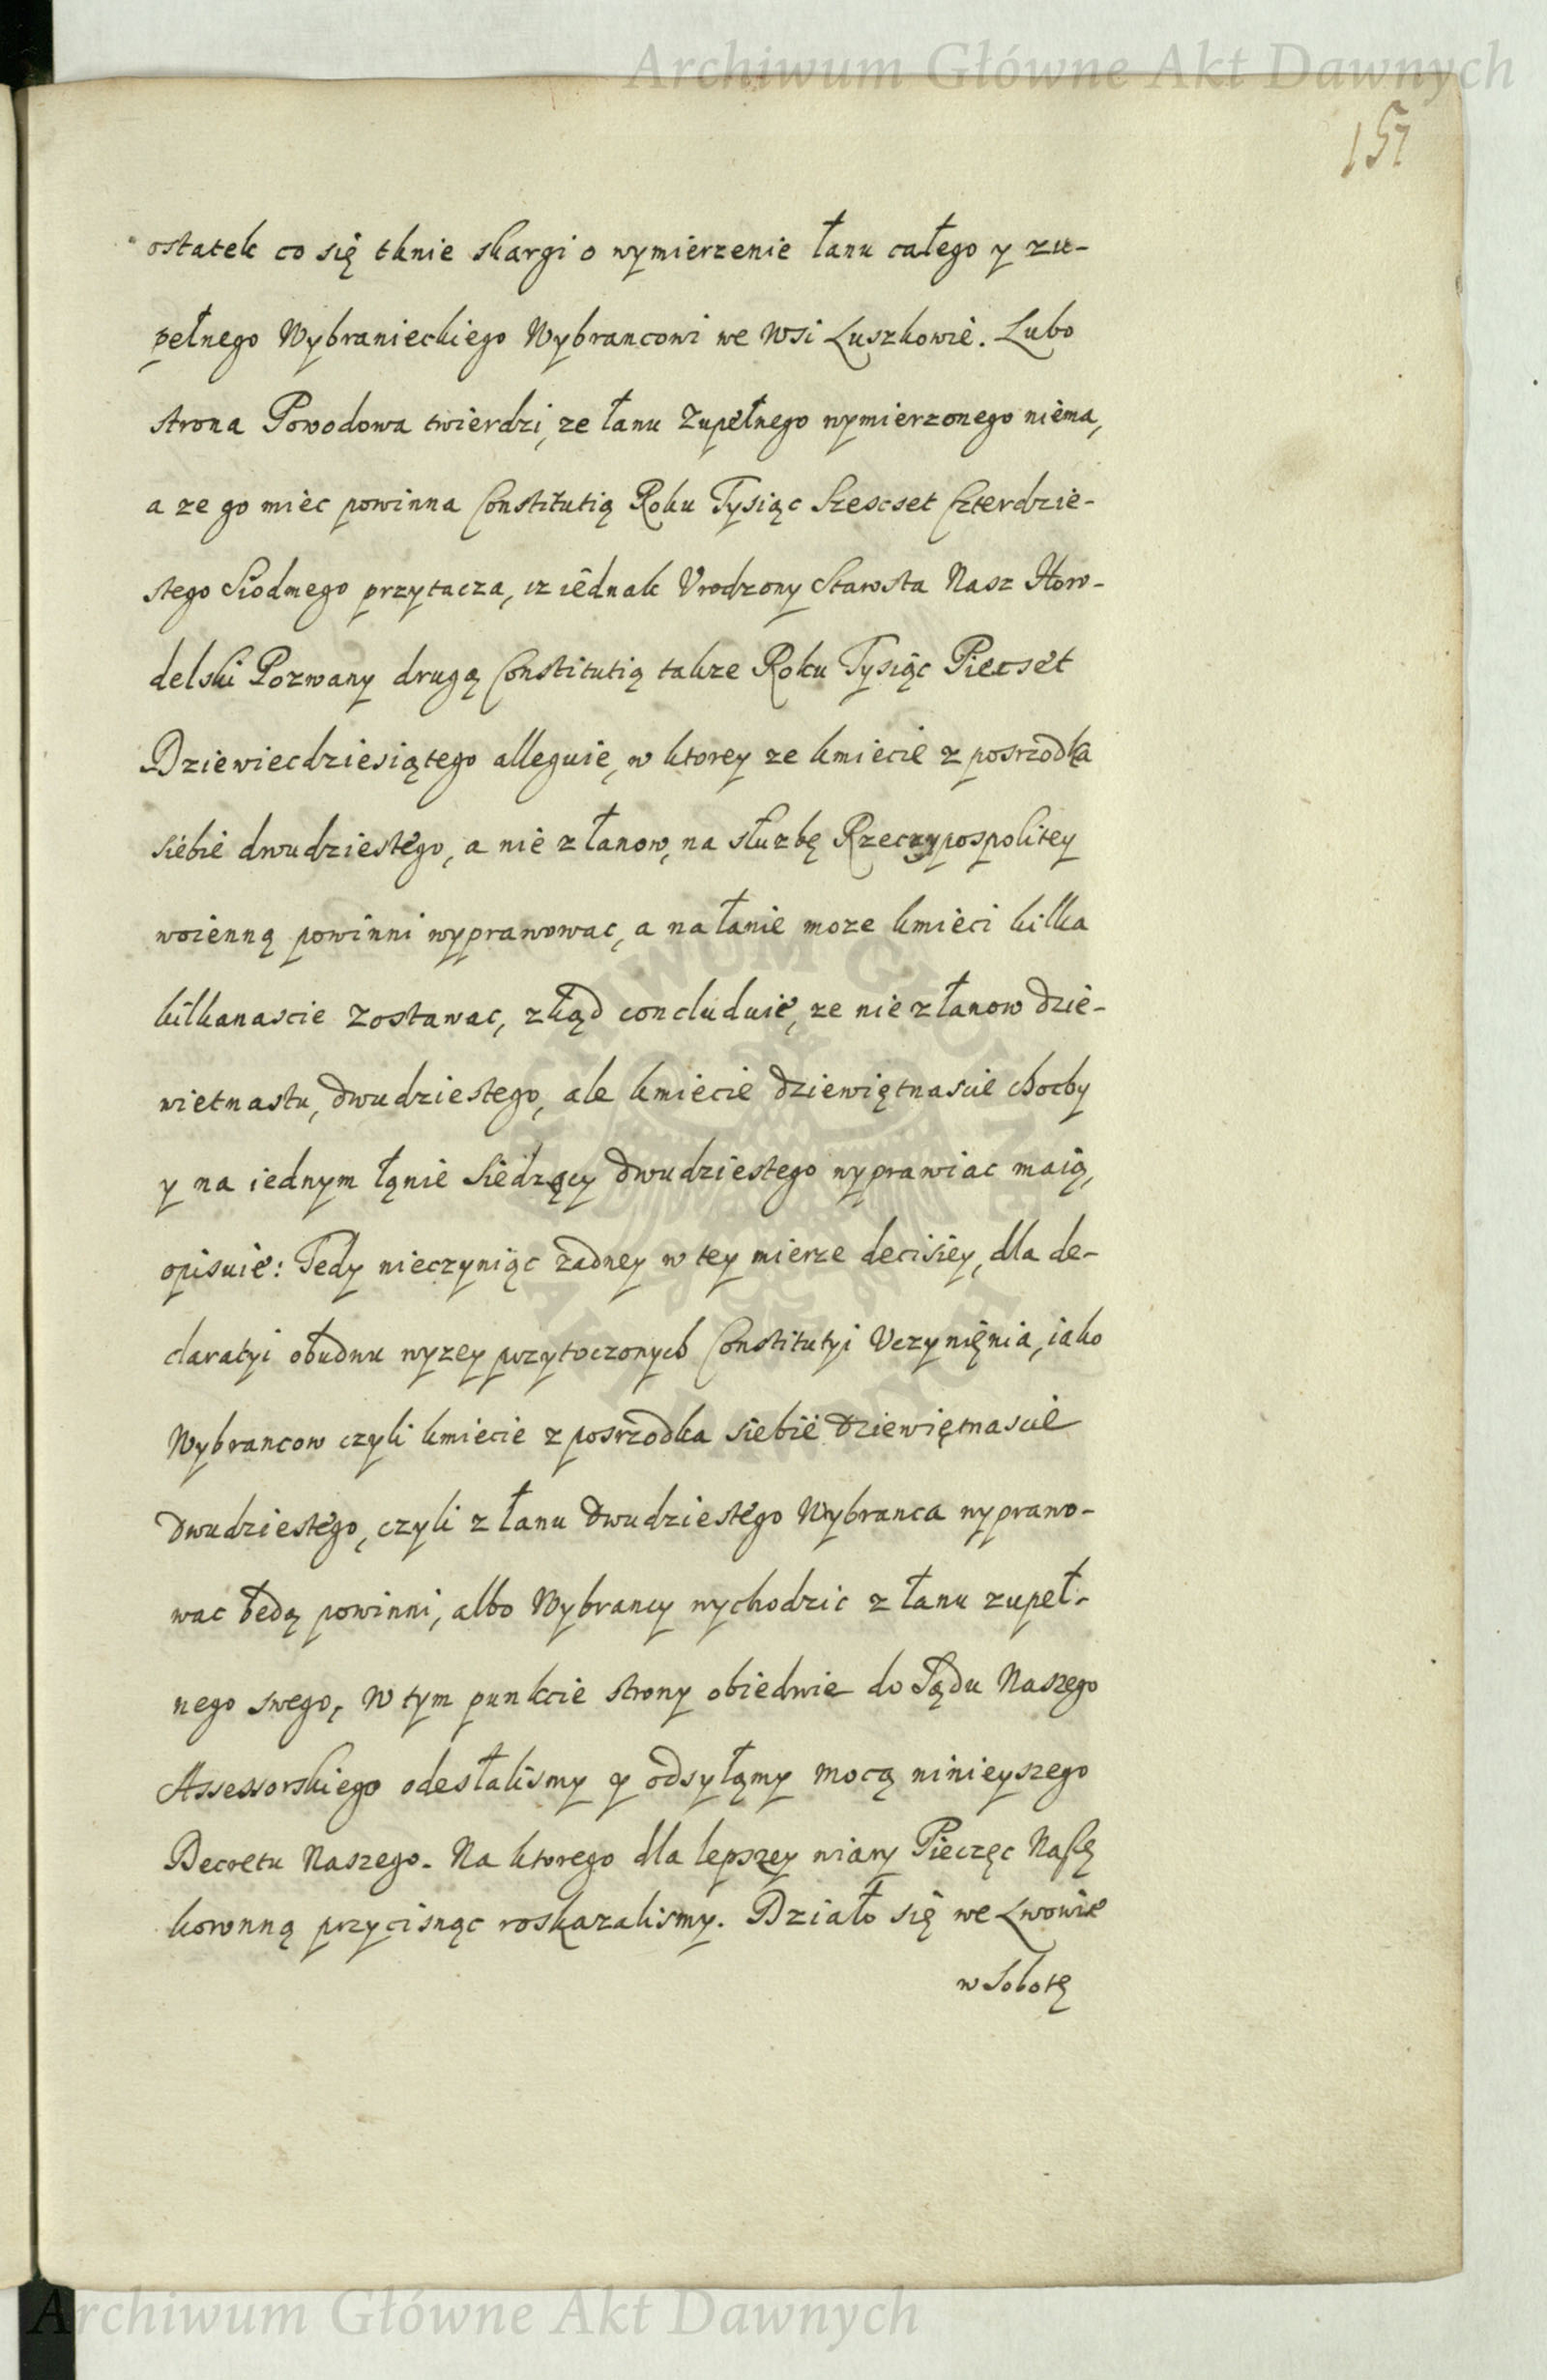 Archiwum Główne Akt Dawnych
157
ostatek co się tknie skargi o wymierzenie łanu całego y zu-
pełnego Wybranieckiego Wybrancowi we Wsi Łuszkowie. Lubo
strona Powodowa twierdzi, ze łanu Zupełnego wymierzonego niema,
a ze go miec powinna Constitutią Roku Tysiąc Szescset Czterdzie-
stego Siodmego przytacza, iz iednak Vrodzony Starosta Nasz Horo-
delski Pozwany drugą Constitutią takze Roku Tysiąc Piecset
Dziewiecdziesiątego alleguie, w ktorey ze kmiecie z posrzodka
siebie dwudziestego, a nie z łanow, na służbę Rzeczypospolitey
woienną powinni wyprawowac, a na łanie moze kmieci kilka
kilkanascie zostawac, zkąd concluduie, ze nie z łanow dzie-
wietnastu, dwudziestego, ale kmiecie dziewiętnascie chocby
y na iednym łanie Siedzący dwudziestego wyprawiac maią,
opisuie: Tedy nieczyniąc żadney w tey mierze decisiey, dla de-
claratyi obudwu wyzey przytoczonych Constitutyi Vczynięnia, iako
Wybrancow czyli kmiecie z posrzodka siebie dziewiętnascie
dwudziestego, czyli z łanu dwudziestego Wybranca wyprawo-
wac będą powinni, albo Wybrancy wychodzic z łanu zupeł-
nego swego, W tym punkcie strony obiedwie do Sądu Naszego
Assessorskiego odesłalismy y odsyłamy mocą ninieyszego
Decretu Naszego. Na ktorego dla lepszey wiary Pieczęc Naszę
koronną przycisnąc roskazalismy. Działo się we Lwowie
w Sobotę
ARCHIWUM GŁÓWNE
AKT DAWNYCH
Archiwum Główne Akt Dawnych